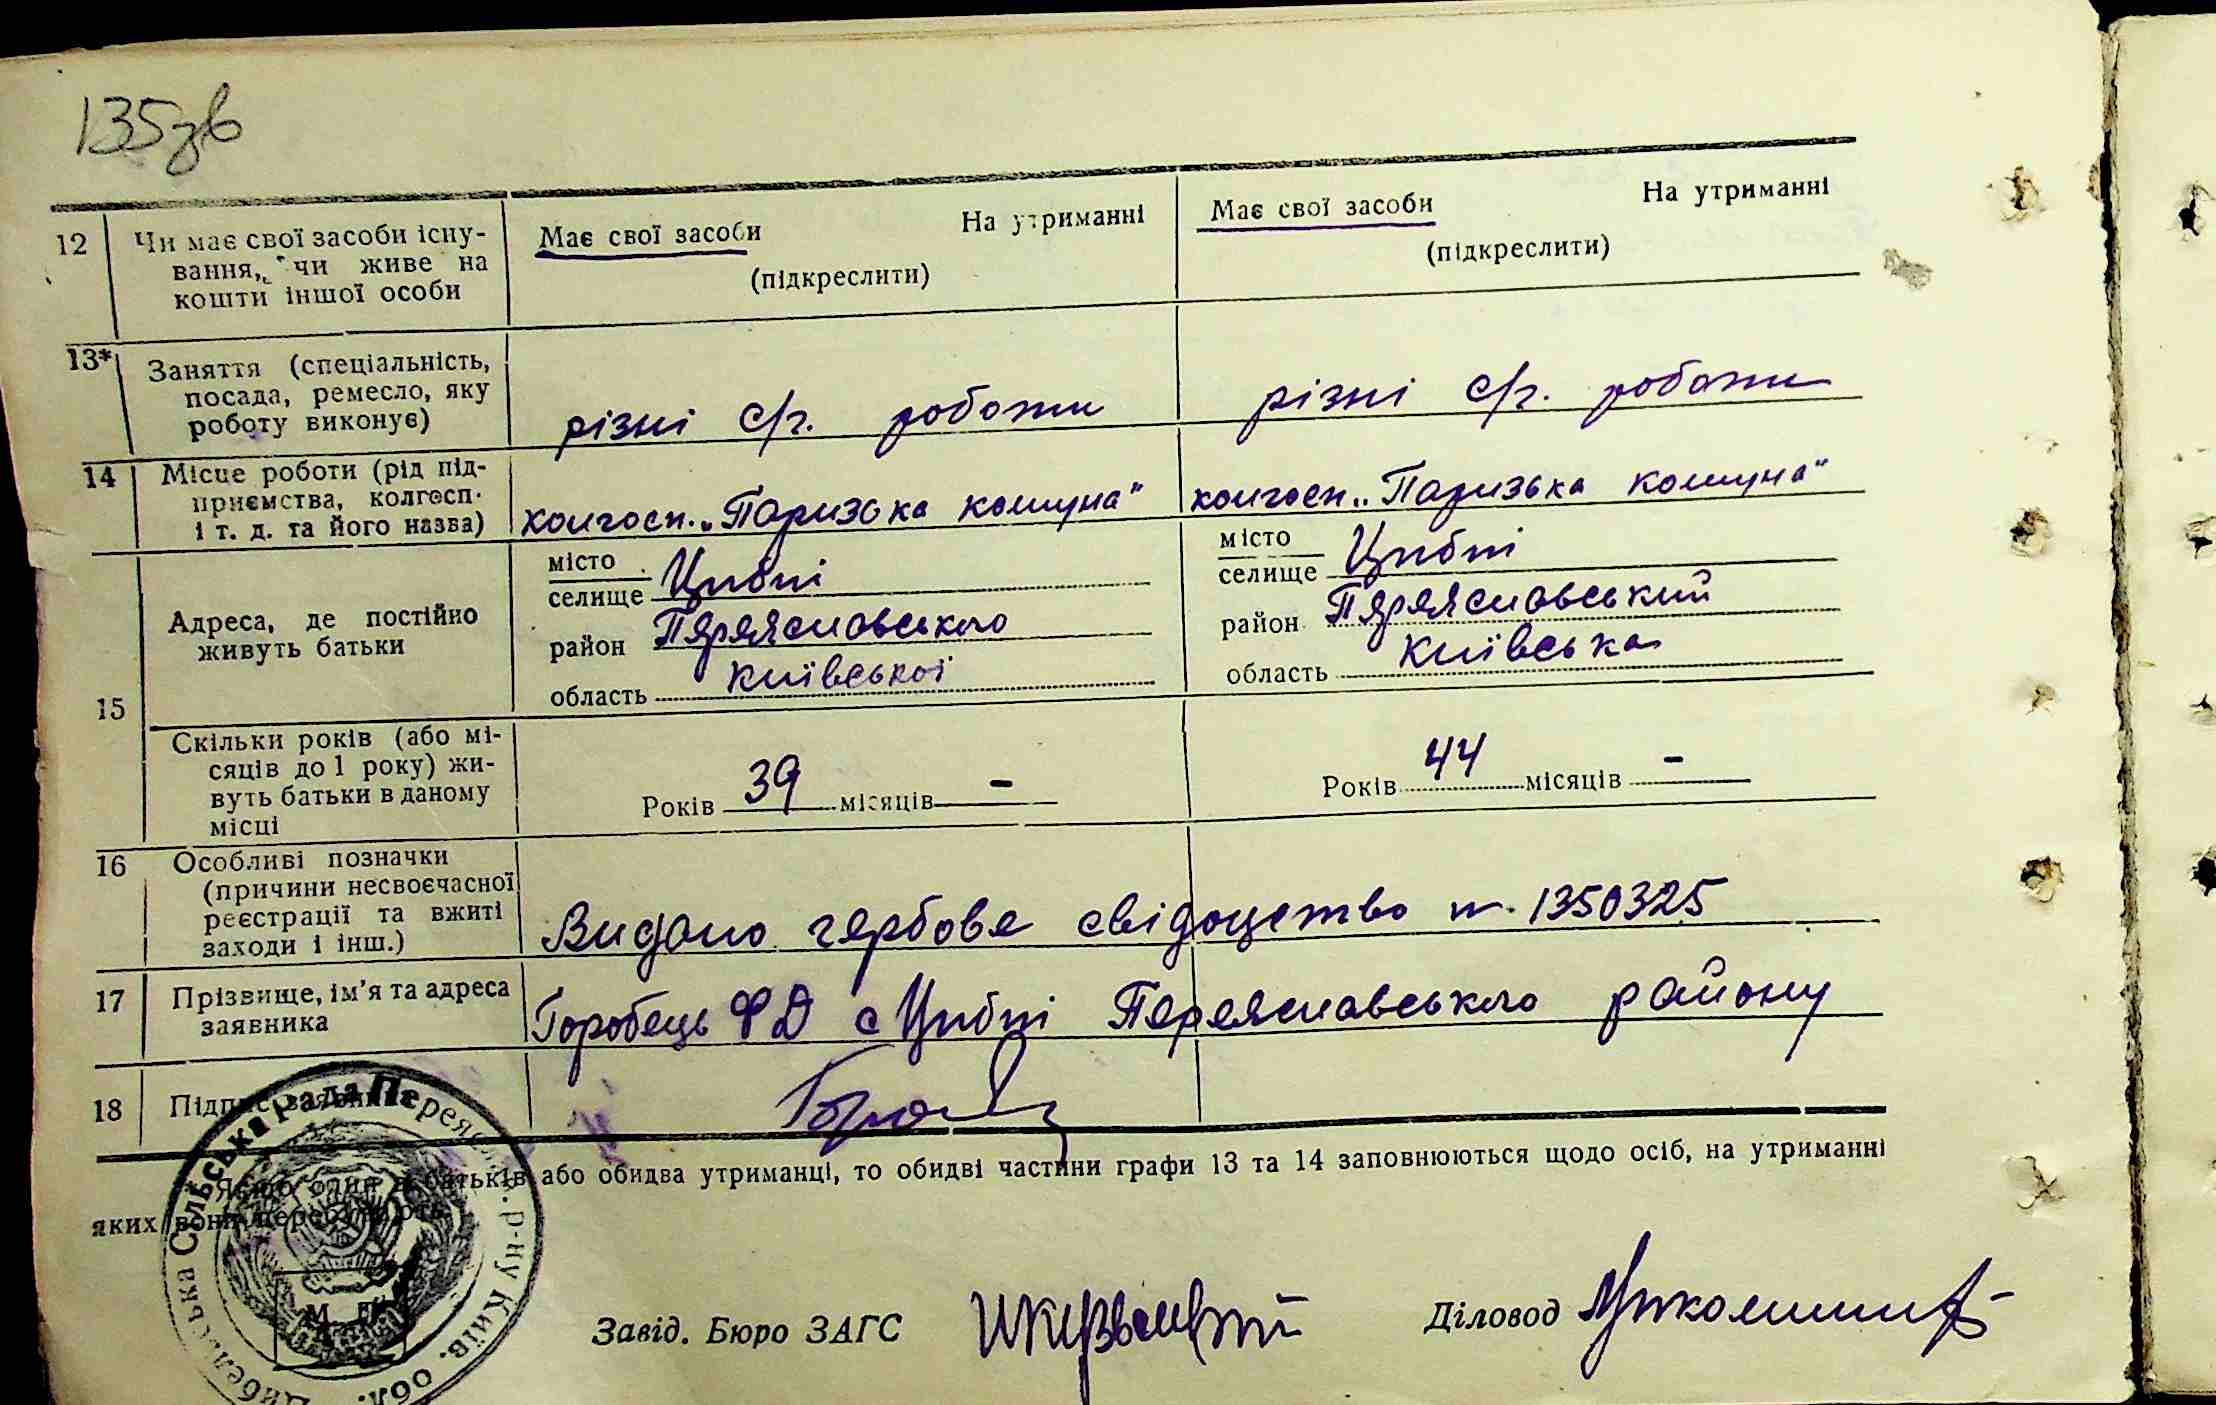 135зв
12 Чи має свої засоби існу-
вання, чи живе на
кошти іншої особи
Має свої засоби На утриманні
(підкреслити)
Має свої засоби На утриманні
(підкреслити)
13* Заняття (спеціальність,
посада, ремесло, яку
роботу виконує)
різні с/г. роботи
різні с/г. роботи
14 Місце роботи (рід під-
приємства, колгосп
і т. д. та його назва)
колгосп. „Паризька комуна"
колгосп „Паризька комуна"
15 Адреса, де постійно
живуть батьки
місто
селище Циблі
район Переяславського
область Київської
місто
селище Циблі
район Переяславський
область Київська
Скільки років (або мі-
сяців до 1 року) жи-
вуть батьки в даному
місці
Років 39 місяців -
Років 44 місяців -
16 Особливі позначки
(причини несвоєчасної
реєстрації та вжиті
заходи і інш.)
Видано гербове свідоцтво н. 1350325
17 Прізвище, ім'я та адреса
заявника
Горобець Ф Д с Циблі Переяславського району
18 Підпис заявника
* Якщо один з батьків або обидва утриманці, то обидві частини графи 13 та 14 заповнюються щодо осіб, на утриманні
яких вони перебувають.
Сільська Рада Переяс. р-ну Київ. обл.
М. П.
Завід. Бюро ЗАГС
Діловод